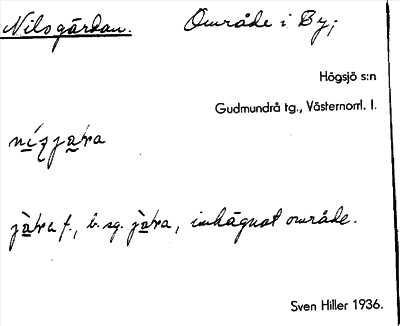 Nilsgårdan. Område i By;
Högsjö s:n
Gudmundrå tg., Västernorrl. l.
jàtra f., b. sg. jàtra, inhägnat område.
Sven Hiller 1936.